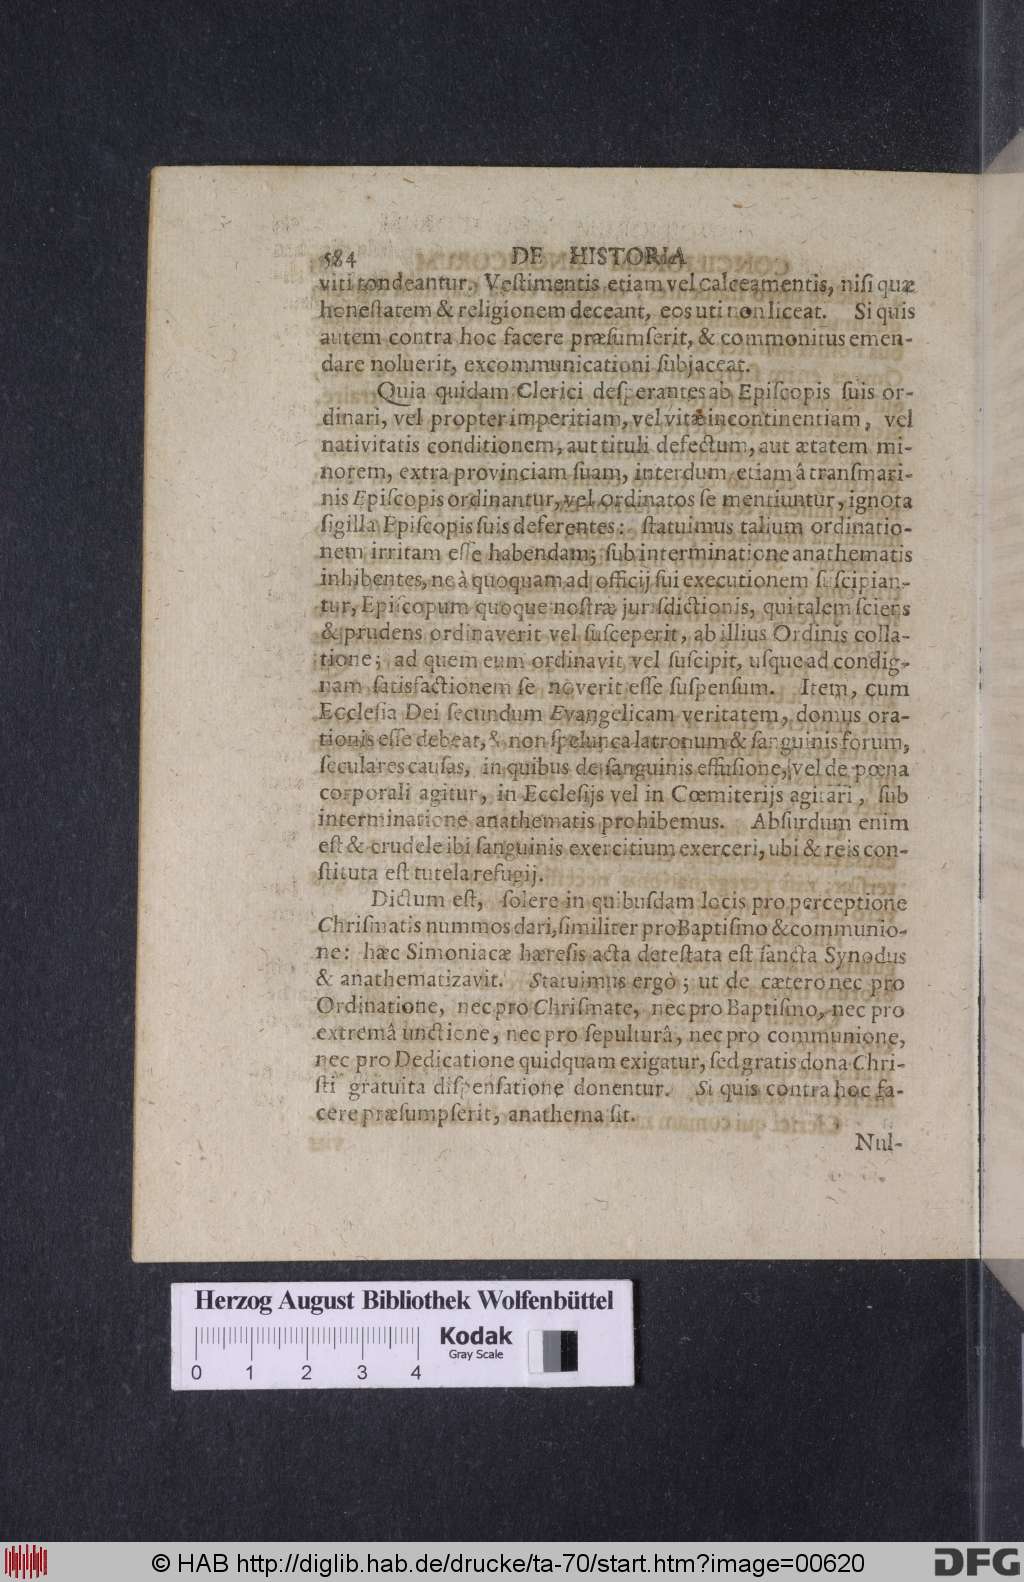 584 DE HISTORIA
viti tondeantur. Veſtimentis etiam vel calceamentis, niſi quæ
honeſtatem & religionem deceant, eos uti non liceat. Si quis
autem contra hoc facere præſumſerit, & commonitus emen-
dare noluerit, excommunicationi ſubjaceat.
Quia quidam Clerici deſperantes ab Epiſcopis ſuis or-
dinari, vel propter imperitiam, vel vitæ incontinentiam, vel
nativitatis conditionem, aut tituli defectum, aut ætatem mi-
norem, extra provinciam ſuam, interdum etiam â tranſmari-
nis Epiſcopis ordinantur, vel ordinatos ſe mentiuntur, ignota
ſigilla Epiſcopis ſuis deferentes: ſtatuimus talium ordinatio-
nem irritam eſſe habendam; ſub interminatione anathematis
inhibentes, ne à quoquam ad officij ſui executionem ſuſcipian-
tur, Epiſcopum quoque noſtræ juriſdictionis, qui talem ſciens
& prudens ordinaverit vel ſuſceperit, ab illius Ordinis colla-
tione; ad quem eum ordinavit vel ſuſcipit, uſque ad condig-
nam ſatisfactionem ſe noverit eſſe ſuſpenſum. Item, cum
Eccleſia Dei ſecundum Evangelicam veritatem, domus ora-
tionis eſſe debeat, & non ſpelunca latronum & ſanguinis forum,
ſeculares cauſas, in quibus de ſanguinis effuſione, vel de pœna
corporali agitur, in Eccleſijs vel in Cœmiterijs agitari, ſub
interminatione anathematis prohibemus. Abſurdum enim
eſt & crudele ibi ſanguinis exercitium exerceri, ubi & reis con-
ſtituta eſt tutela refugij.
Dictum eſt, ſolere in quibuſdam locis pro perceptione
Chriſmatis nummos dari, ſimiliter pro Baptiſmo & communio-
ne: hæc Simoniacæ hæreſis acta deteſtata eſt ſancta Synodus
& anathematizavit. Statuimus ergò; ut de cætero nec pro
Ordinatione, nec pro Chriſmate, nec pro Baptiſmo, nec pro
extremâ unctione, nec pro ſepulturâ, nec pro communione,
nec pro Dedicatione quidquam exigatur, ſed gratis dona Chri-
ſti gratuita diſpenſatione donentur. Si quis contra hoc fa-
cere præſumpſerit, anathema ſit.
Nul-
Herzog August Bibliothek Wolfenbüttel
Kodak
Gray Scale
0 1 2 3 4
© HAB http://diglib.hab.de/drucke/ta-70/start.htm?image=00620 DFG